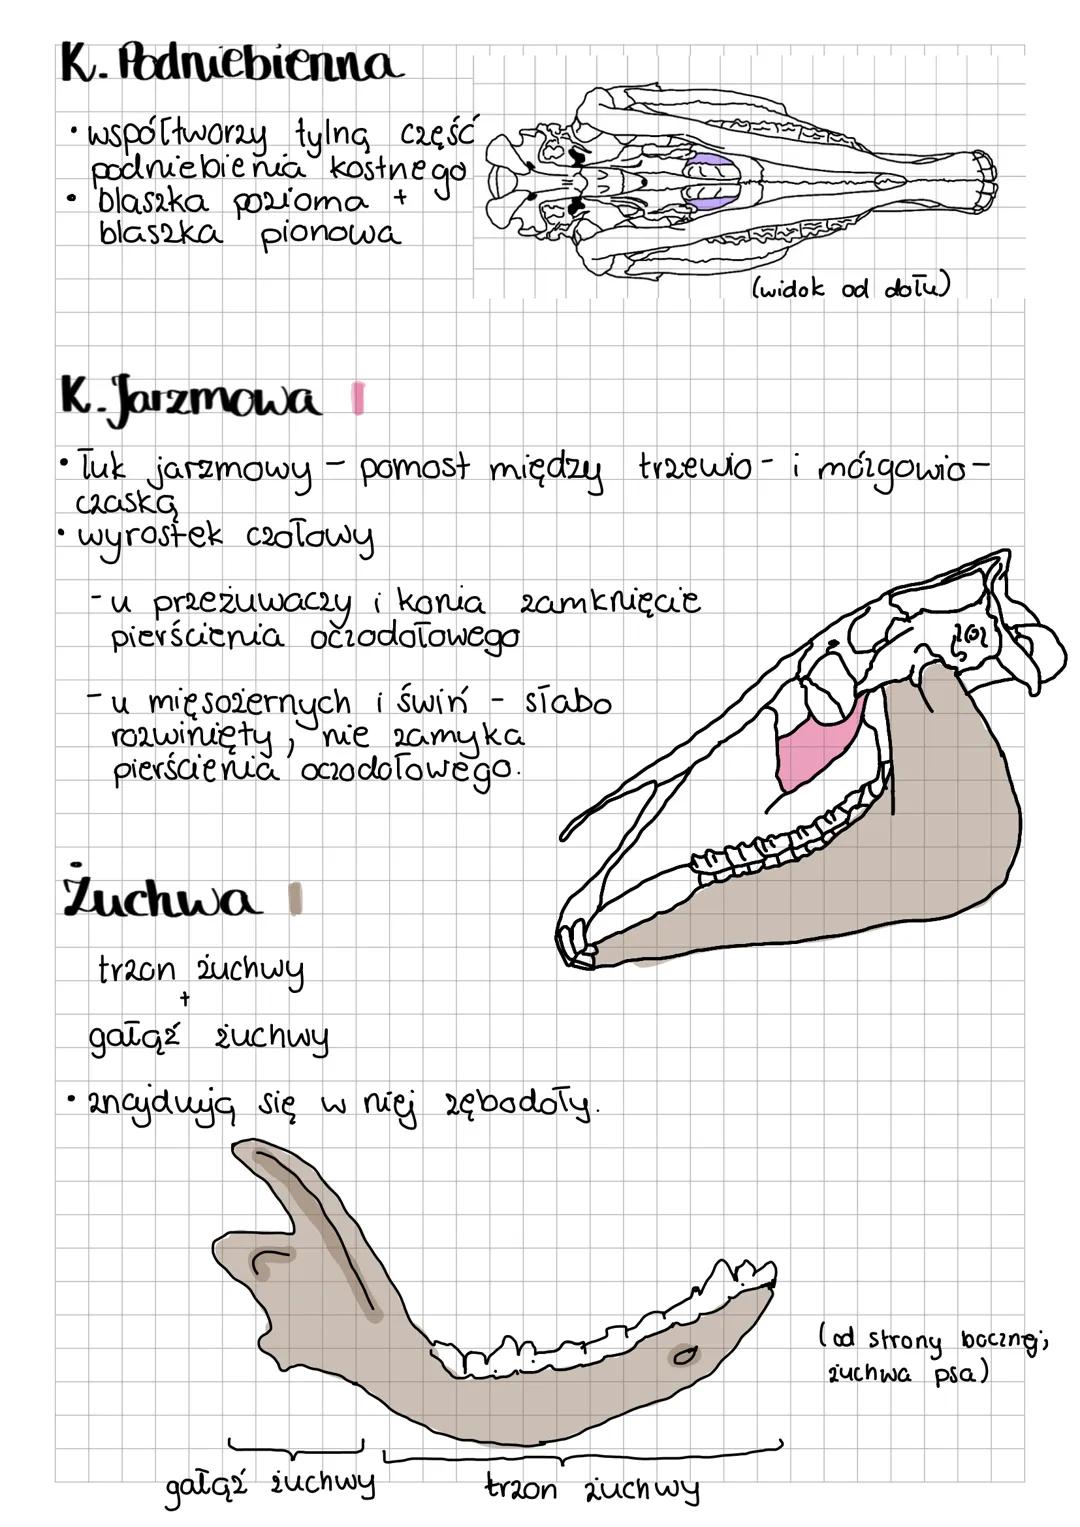 K. Podniebienna
• współtworzy tylną część
podniebienia kostnego
• blaszka pozioma +
blaszka pionowa
(widok od dołu)
K. Jarzmowa
• Łuk jarzmowy - pomost między trzewio- i mózgowio-
czaską
• wyrostek czołowy
- u przeżuwaczy i konia zamknięcie
pierścienia oczodołowego
- u mięsożernych i świń - słabo
rozwinięty, nie zamyka
pierścienia oczodołowego.
Żuchwa
trzon żuchwy
+
gałąź żuchwy
• znajdują się w niej zębodoły.
(od strony bocznej;
żuchwa psa)
gałąź żuchwy
trzon żuchwy